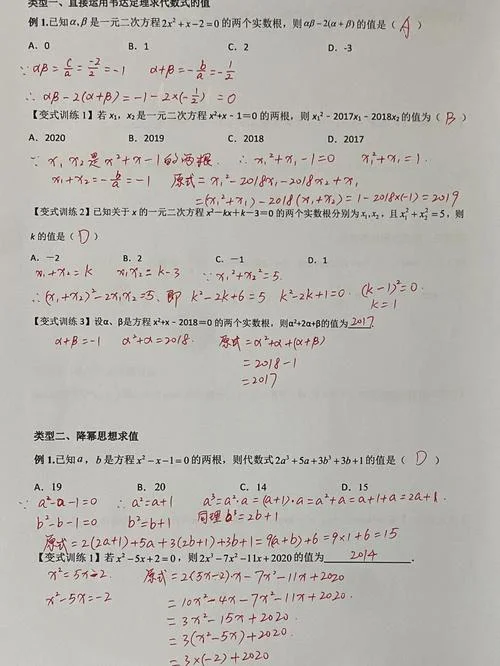 类型一、直接运用韦达定理求代数式的值
例 1.已知α,β是一元二次方程2x²+x-2=0的两个实数根，则αβ-2(α+β)的值是（ A ）
A. 0 B. 1 C. 2 D. -3
∵ αβ=c/a=-2/2=-1 α+β=-b/a=-1/2
∴ αβ-2(α+β)=-1-2×(-1/2)=0
【变式训练 1】若 x₁，x₂是一元二次方程 x²+x-1=0 的两根，则 x₁²-2017x₁-2018x₂的值为（ B ）
A. 2020 B. 2019 C. 2018 D. 2017
∵ x₁ x₂ 是 x²+x-1 的两根 ∴ x₁²+x₁-1=0 x₁²+x₁=1.
x₁+x₂=-b/a=-1 原式=x₁²-2018x₁-2018x₂+x₁
=(x₁²+x₁)-2018(x₁+x₂)=1-2018×(-1)=2019
【变式训练 2】已知关于 x 的一元二次方程 x²-kx+k-3=0 的两个实数根分别为 x₁,x₂，且 x₁²+x₂²=5，则
k 的值是（ D ）
A. -2 B. 2 C. -1 D. 1
x₁+x₂=k x₁x₂=k-3 ∵ x₁²+x₂²=5.
∴(x₁+x₂)²-2x₁x₂=5、即 k²-2k+6=5 k²-2k+1=0. (k-1)²=0
k=1
【变式训练 3】设α、β是方程 x²+x-2018=0 的两个实数根，则α²+2α+β的值为 2017
α+β=-1 α²+α=2018. 原式=α²+α+(α+β)
=2018-1
=2017
类型二、降幂思想求值
例 1.已知a，b是方程x²-x-1=0的两根，则代数式2a³+5a+3b³+3b+1的值是（ D ）
A. 19 B. 20 C. 14 D. 15
∵ a²-a-1=0 ∴ a²=a+1 a³=a²·a=(a+1)·a=a²+a=a+1+a=2a+1.
b²-b-1=0 b²=b+1 同理 b³=2b+1
原式=2(2a+1)+5a+3(2b+1)+3b+1=9(a+b)+6=9×1+6=15
【变式训练 1】若x²-5x+2=0，则2x³-7x²-11x+2020的值为 2014 .
x²=5x-2. 原式=2(5x-2)·x-7x²-11x+2020
x²-5x=-2 =10x²-4x-7x²-11x+2020.
=3x²-15x+2020.
=3(x²-5x)+2020.
=3×(-2)+2020